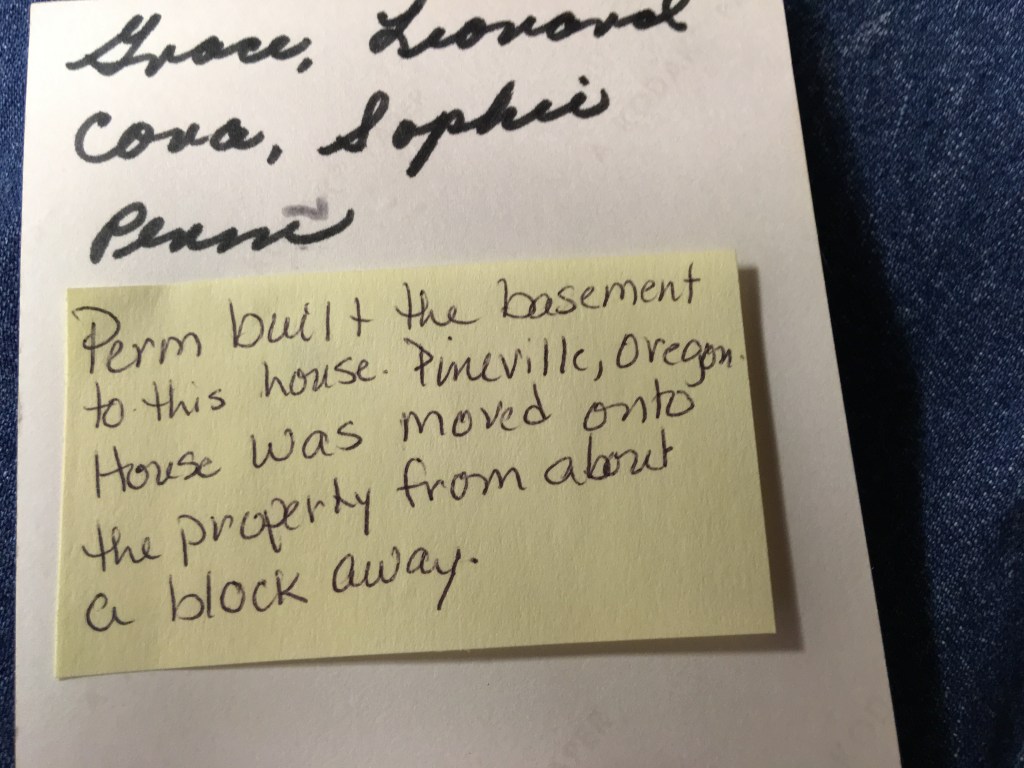 Grace, Leonard
Cora, Sophie
Perm
Perm built the basement
to this house. Pineville, Oregon.
House was moved onto
the property from about
a block away.